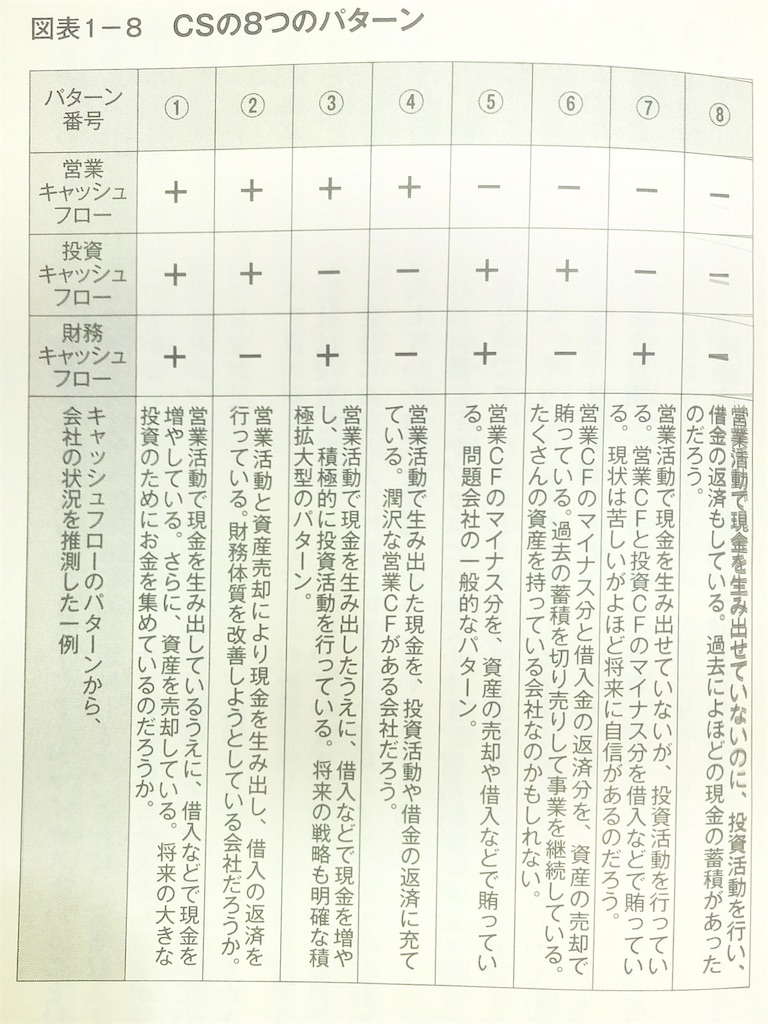 図表1−8　CSの8つのパターン
パターン
番号
①
②
③
④
⑤
⑥
⑦
⑧
営業
キャッシュ
フロー
＋
＋
＋
＋
−
−
−
−
投資
キャッシュ
フロー
＋
＋
−
−
＋
＋
−
−
財務
キャッシュ
フロー
＋
−
＋
−
＋
−
＋
−
キャッシュフローのパターンから、
会社の状況を推測した一例
営業活動で現金を生み出しているうえに、借入などで現金を
増やしている。さらに、資産を売却している。将来の大きな
投資のためにお金を集めているのだろうか。
営業活動と資産売却により現金を生み出し、借入の返済を
行っている。財務体質を改善しようとしている会社だろうか。
営業活動で現金を生み出したうえに、借入などで現金を増や
し、積極的に投資活動を行っている。将来の戦略も明確な積
極拡大型のパターン。
営業活動で生み出した現金を、投資活動や借金の返済に充て
ている。潤沢な営業CFがある会社だろう。
営業CFのマイナス分を、資産の売却や借入などで賄ってい
る。問題会社の一般的なパターン。
営業CFのマイナス分と借入金の返済分を、資産の売却で
賄っている。過去の蓄積を切り売りして事業を継続している。
たくさんの資産を持っている会社なのかもしれない。
営業活動で現金を生み出せていないが、投資活動を行ってい
る。営業CFと投資CFのマイナス分を借入などで賄ってい
る。現状は苦しいがよほど将来に自信があるのだろう。
営業活動で現金を生み出せていないのに、投資活動を行い、
借金の返済もしている。過去によほどの現金の蓄積があった
のだろう。